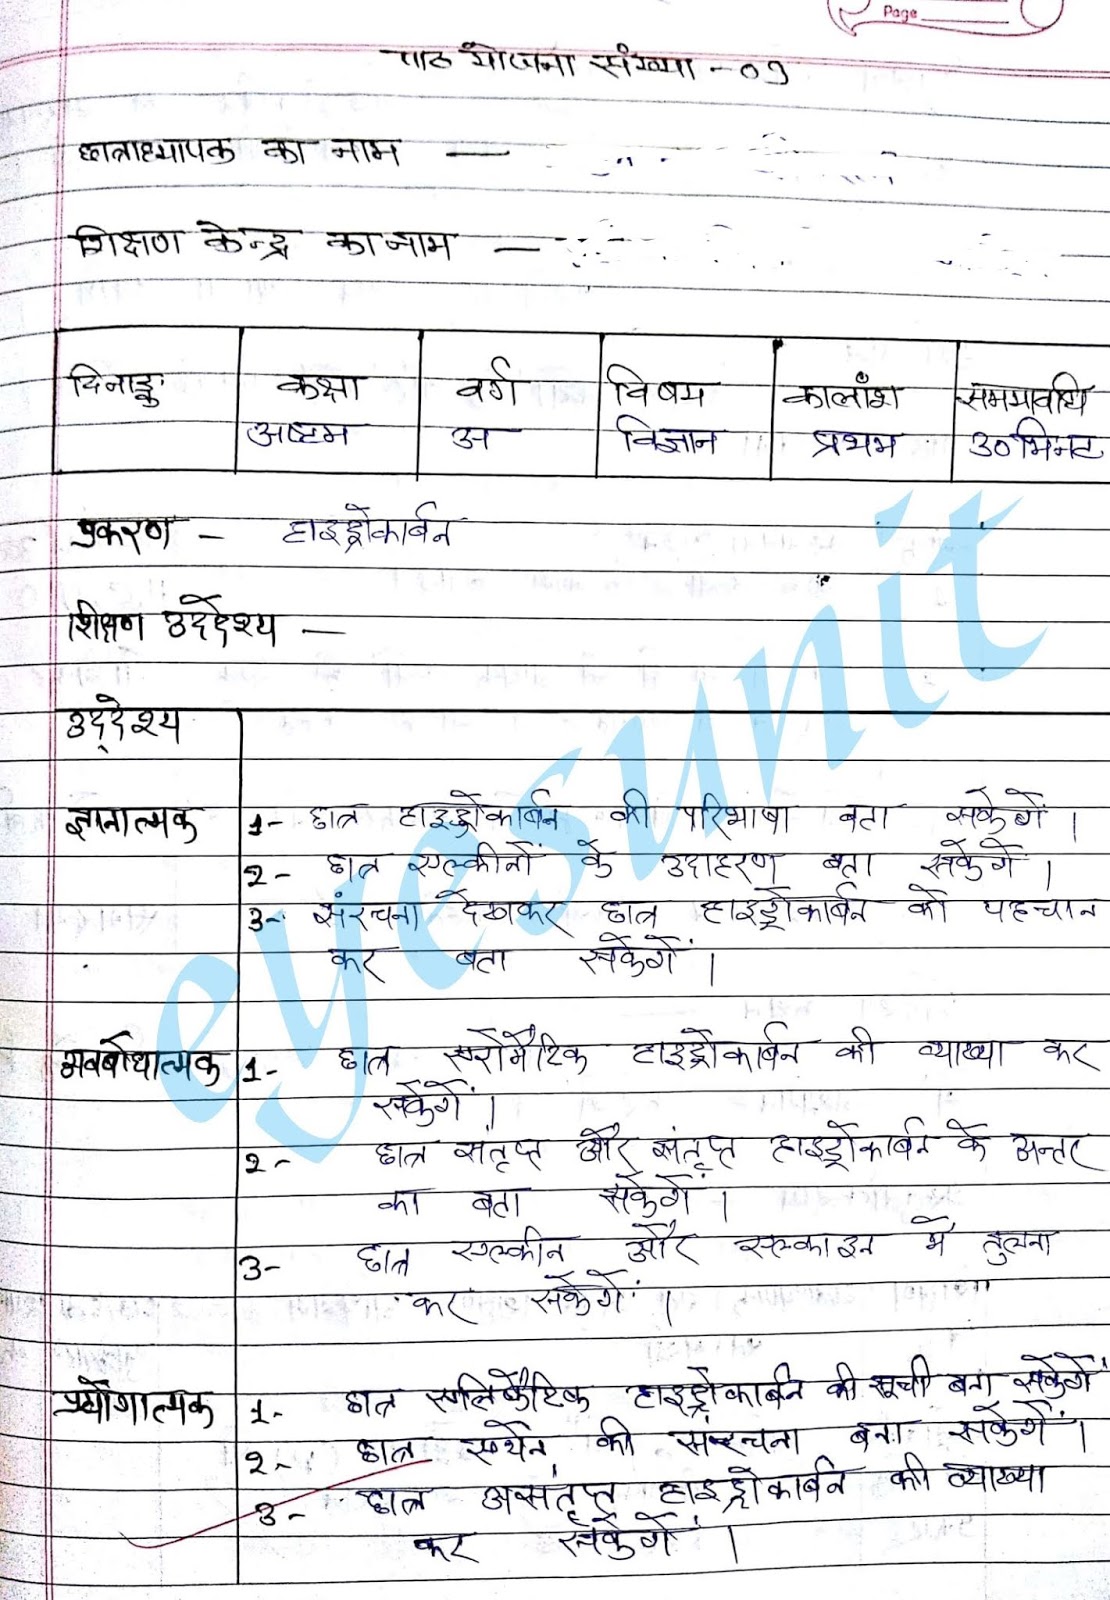 Page
पाठ योजना संख्या - 09
छात्राध्यापक का नाम —
शिक्षण केन्द्र का नाम —
दिनाङ्क कक्षा वर्ग विषय कालाँश समयावधि
अष्टम अ विज्ञान प्रथम 30 मिनट
प्रकरण - हाइड्रोकार्बन
शिक्षण उद्देश्य —
उद्देश्य
ज्ञानात्मक 1- छात्र हाइड्रोकार्बन की परिभाषा बता सकेगें ।
2- छात्र एल्कीनों के उदाहरण बता सकेगें ।
3- संरचना देखकर छात्र हाइड्रोकार्बन को पहचान
कर बता सकेगें ।
अवबोधात्मक 1- छात्र एरोमैटिक हाइड्रोकार्बन की व्याख्या कर
सकेगें ।
2- छात्र संतृप्त और संतृप्त हाइड्रोकार्बन के अन्तर
का बता सकेगें ।
3- छात्र एल्कीन और एल्काइन में तुलना
कर सकेगें ।
प्रयोगात्मक 1- छात्र एलिफैटिक हाइड्रोकार्बन की सूची बना सकेगें
2- छात्र एथेन की संरचना बना सकेगें ।
3- छात्र असंतृप्त हाइड्रोकार्बन की व्याख्या
कर सकेगें ।
eyesunit